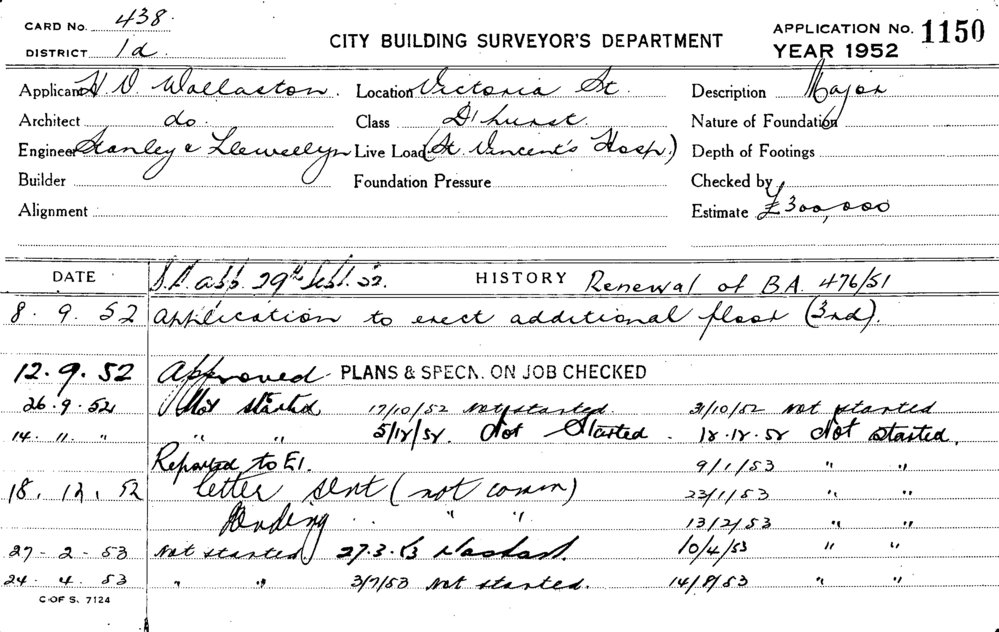 CARD No. 438.
DISTRICT 1d.
CITY BUILDING SURVEYOR'S DEPARTMENT
APPLICATION No. 1150
YEAR 1952
Applicant H. V. Wollaston. Location Victoria St. Description Major
Architect do. Class D'hurst. Nature of Foundation
Engineer Stanley & Llewellyn Live Load (St. Vincent's Hosp.) Depth of Footings
Builder Foundation Pressure Checked by
Alignment Estimate £300,000
DATE 29th Sept. 52. HISTORY Renewal of BA. 476/51
8. 9. 52 application to erect additional floor (3rd).
12. 9. 52 Approved PLANS & SPECN. ON JOB CHECKED
26. 9. 52 Not started 17/10/52 Not started. 31/10/52 Not started
14. 11. " " " 5/12/52. Not Started. 12.12.52 Not started.
Reported to E1. 9/1/53 " "
18. 12. 52 letter sent (not comm) 23/1/53 " "
Pending " " 13/2/53 " "
27 - 2 - 53 Not started 27.3.53 10/4/53 " "
24. 4. 53 " " 3/7/53 Not started. 14/8/53 " "
C OF S. 7124